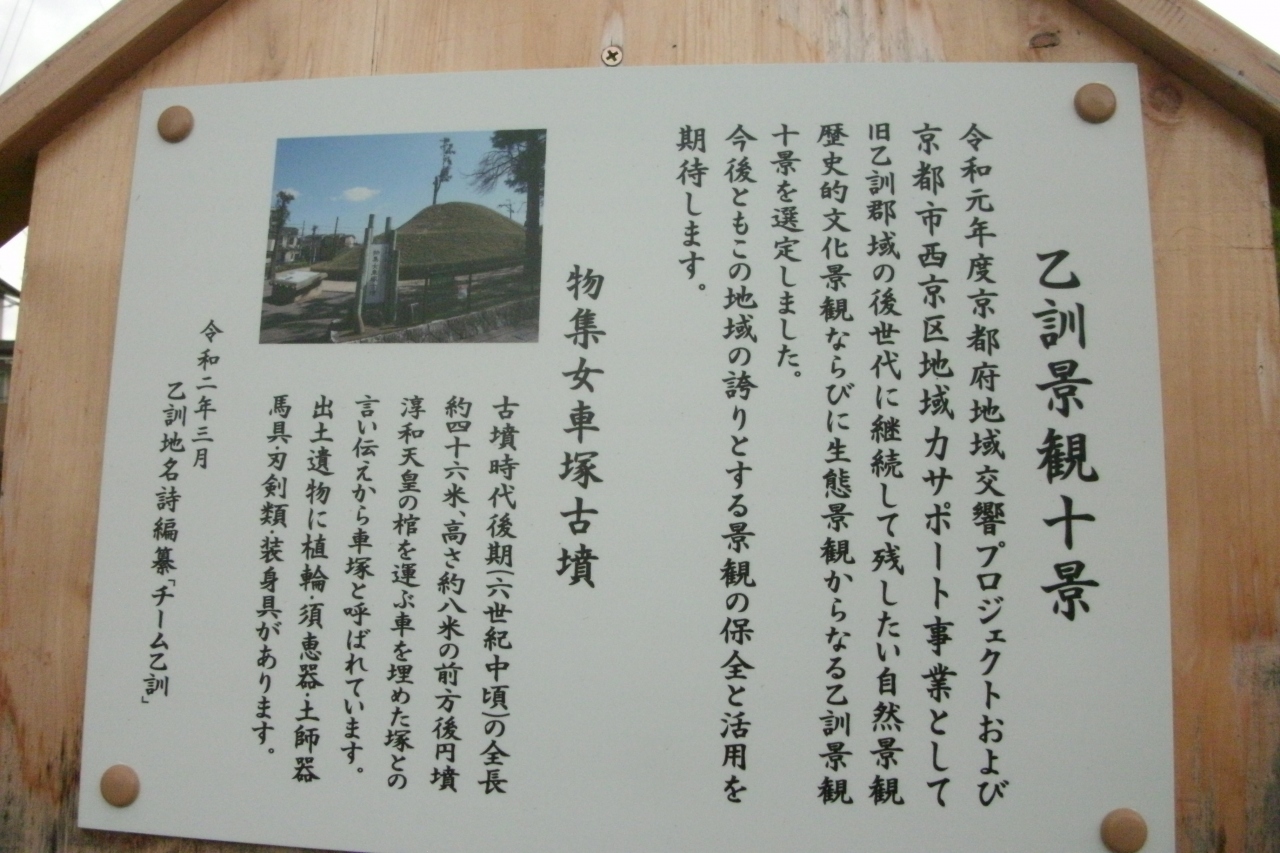 乙訓景観十景
令和元年度京都府地域交響プロジェクトおよび
京都市西京区地域力サポート事業として
旧乙訓郡域の後世代に継続して残したい自然景観
歴史的文化景観ならびに生態景観からなる乙訓景観
十景を選定しました。
今後ともこの地域の誇りとする景観の保全と活用を
期待します。
物集女車塚古墳
古墳時代後期(六世紀中頃)の全長
約四十六米、高さ約八米の前方後円墳
淳和天皇の棺を運ぶ車を埋めた塚との
言い伝えから車塚と呼ばれています。
出土遺物に植輪・須恵器・土師器
馬具・刃剣類・装身具があります。
令和二年三月
乙訓地名詩編纂「チーム乙訓」